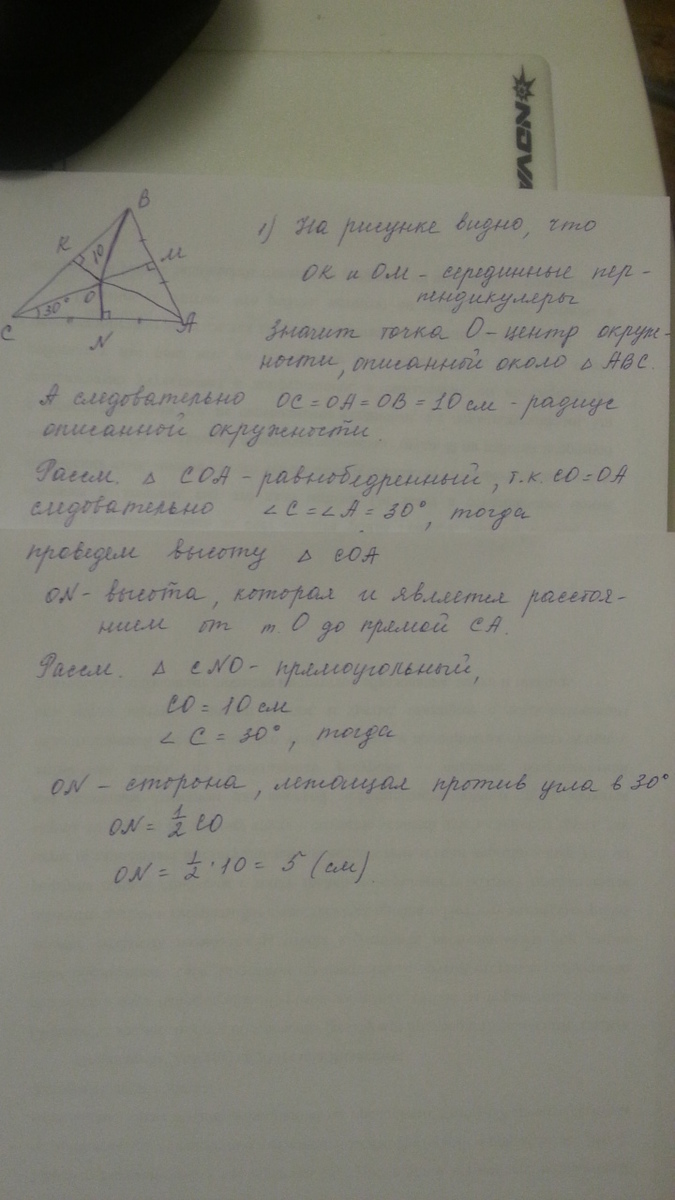 NOVA
B
K
10
M
O
30°
C
N
A
1) На рисунке видно, что
ОК и ОМ - серединные пер-
пендикуляры
Значит точка О - центр окруж-
ности, описанной около △ АВС.
А следовательно ОС = ОА = ОВ = 10 см - радиус
описанной окружности.
Рассм. △ СОА - равнобедренный, т.к. СО = ОА
следовательно ∠С = ∠А = 30°, тогда
проведем высоту △ СОА
ОN - высота, которая и является расстоя-
нием от т. О до прямой СА.
Рассм. △ CNO - прямоугольный,
СО = 10 см
∠ С = 30°, тогда
ОN - сторона, лежащая против угла в 30°
ОN = 1/2 СО
ОN = 1/2 · 10 = 5 (см)